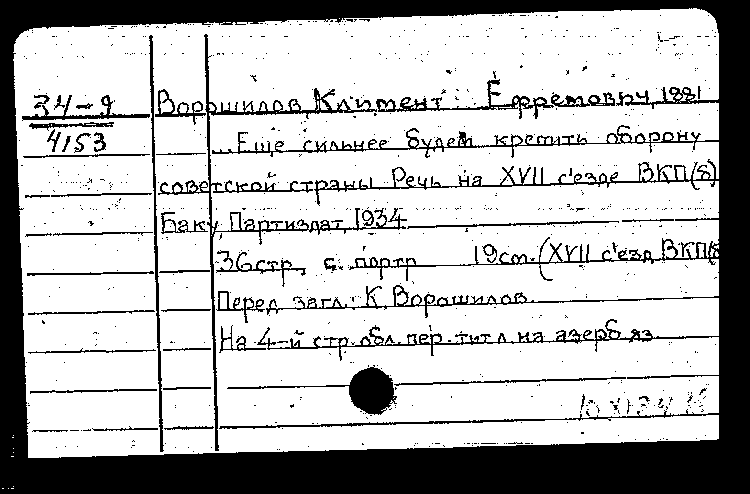 34-9
4153
Ворошилов, Климент Ефремович, 1881
...Еще сильнее будем крепить оборону
советской страны Речь на XVII с'езде ВКП(б)
Баку, Партиздат, 1934
36 стр., с. портр 19 см. (XVII с'езд ВКП(б
Перед загл.: К. Ворошилов.
На 4-й стр. обл. пер. тит. л. на азерб. яз.